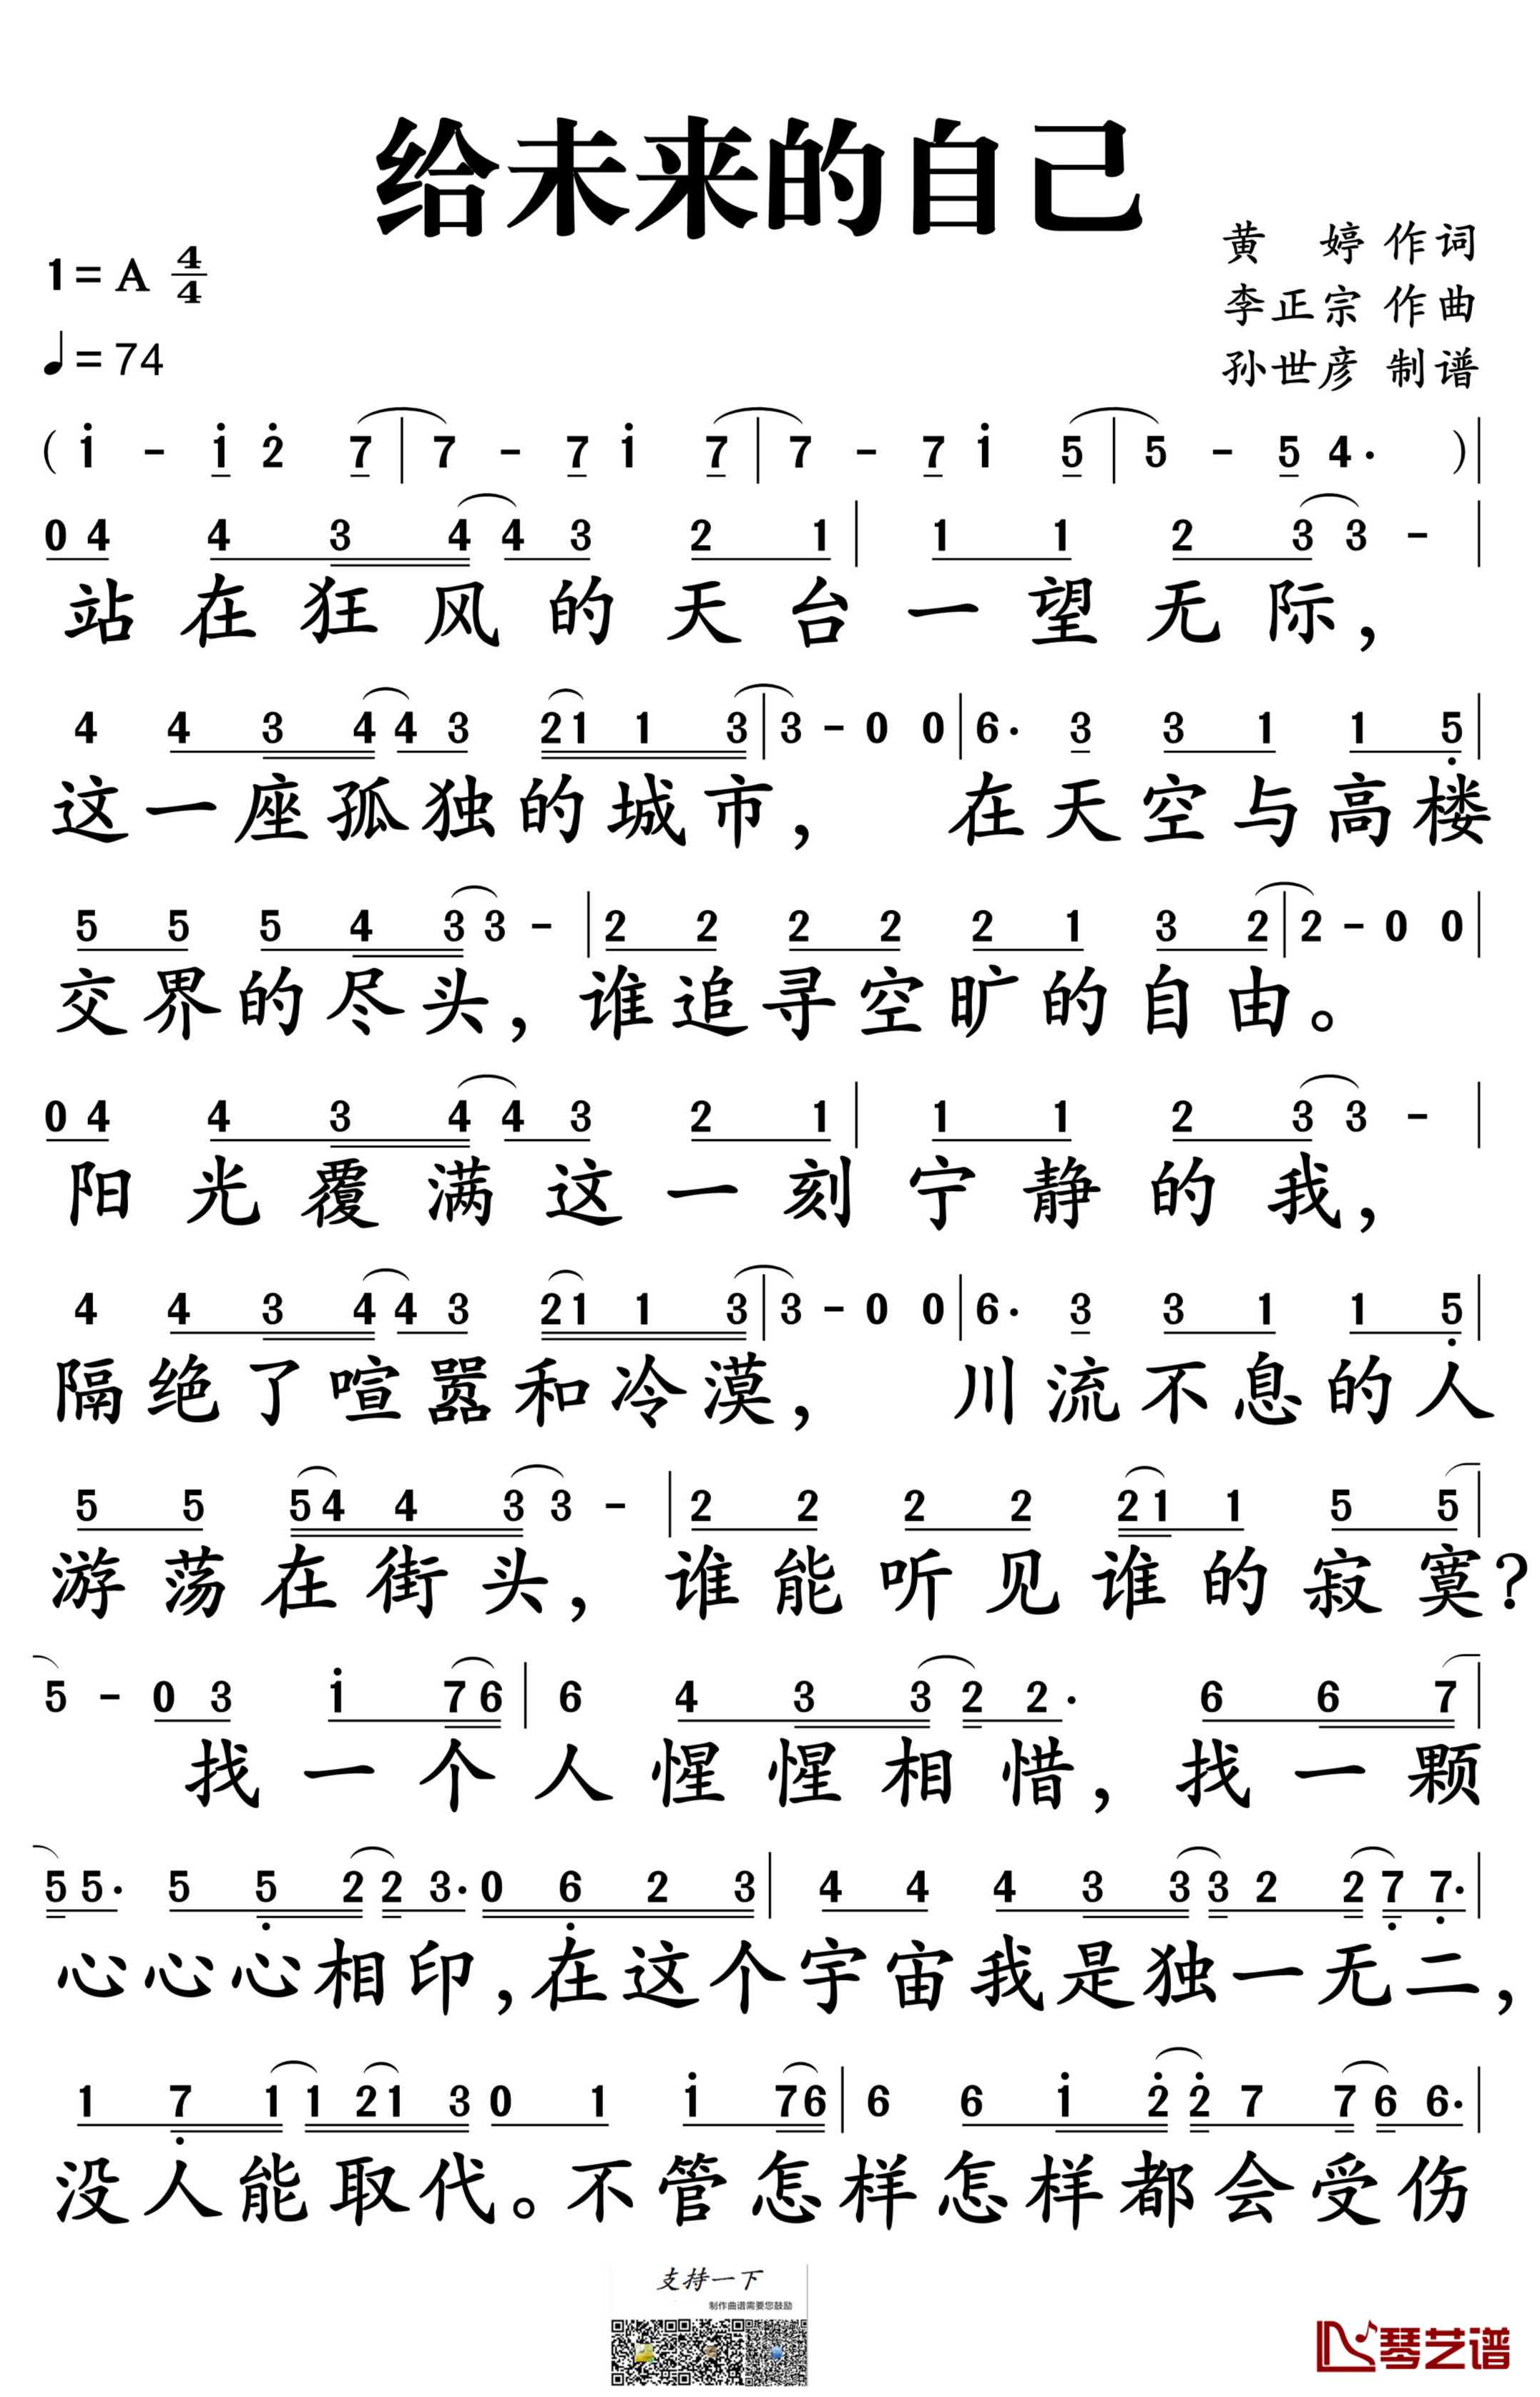 给未来的自己
1=A 4/4
♩=74
黄 婷 作词
李正宗 作曲
孙世彦 制谱
( i̇ - i̇ 2̇ 7 | 7 - 7 i̇ 7 | 7 - 7 i̇ 5 | 5 - 5 4· ) |
0 4 4 3 4 4 3 2 1 | 1 1 2 3 3 - |
站在狂风的天台一望无际，
4 4 3 4 4 3 2 1 1 3 | 3 - 0 0 | 6· 3 3 1 1 5̣ |
这一座孤独的城市， 在天空与高楼
5 5 5 4 3 3 - | 2 2 2 2 2 1 3 2 | 2 - 0 0 |
交界的尽头，谁追寻空旷的自由。
0 4 4 3 4 4 3 2 1 | 1 1 2 3 3 - |
阳光覆满这一刻宁静的我，
4 4 3 4 4 3 2 1 1 3 | 3 - 0 0 | 6· 3 3 1 1 5̣ |
隔绝了喧嚣和冷漠， 川流不息的人
5 5 5 4 4 3 3 - | 2 2 2 2 2 1 1 5 5 |
游荡在街头，谁能听见谁的寂寞?
5 - 0 3 i̇ 7 6 | 6 4 3 3 2 2· 6 6 7 |
找一个人惺惺相惜，找一颗
5 5· 5 5̣ 2 2 3· 0 6̣ 2 3 | 4 4 4 3 3 3 2 2 7̣ 7̣· |
心心心相印，在这个宇宙我是独一无二，
1 7̣ 1 1 2 1 3 0 1 i̇ 7 6 | 6 6 i̇ 2̇ 2̇ 7 7 6 6· |
没人能取代。不管怎样怎样都会受伤
支持一下
制作曲谱需要您鼓励
琴艺谱